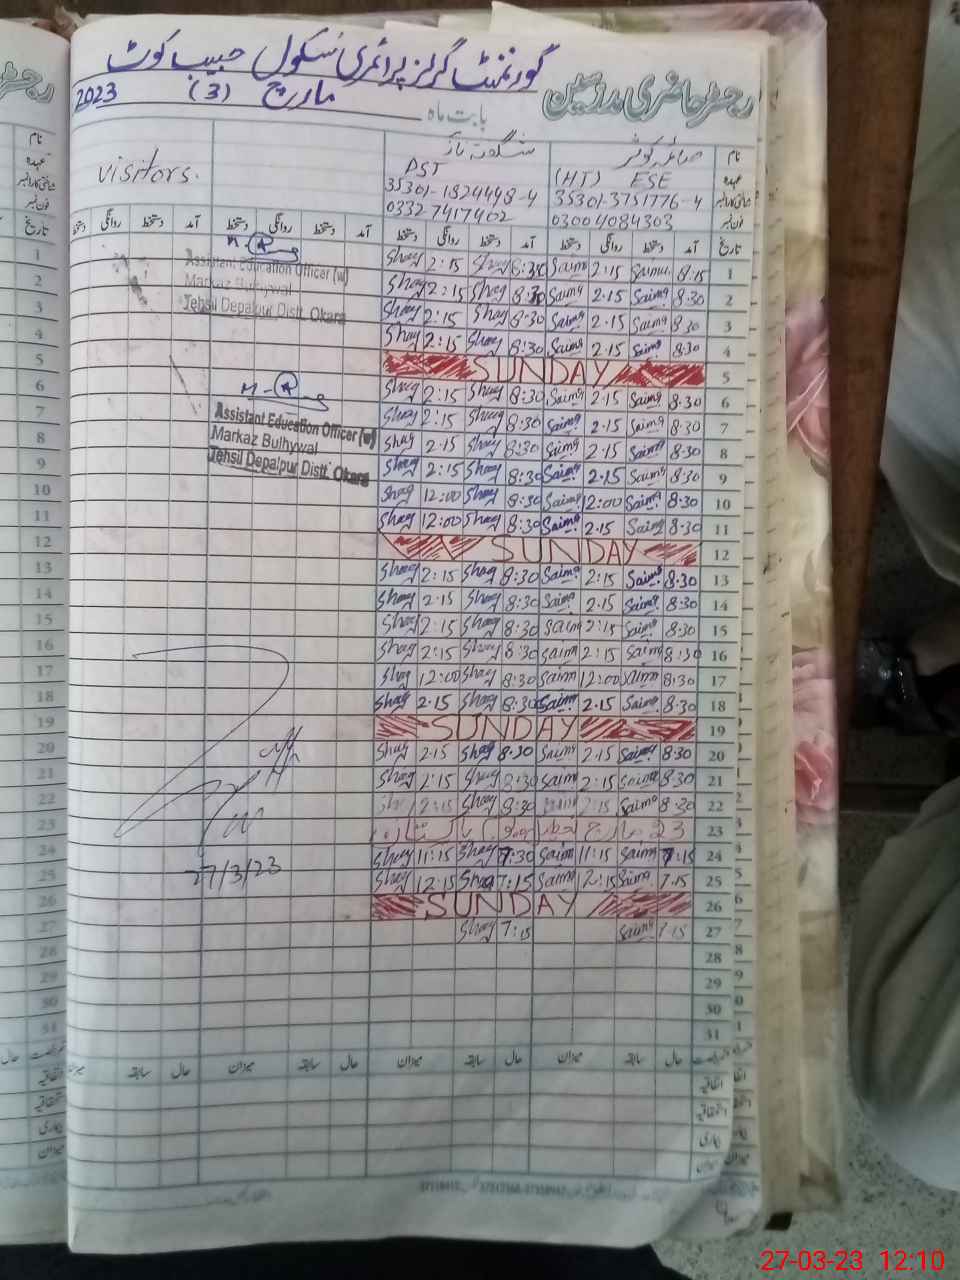 گورنمنٹ گرلز پرائمری سکول حبیب کوٹ
رجسٹر حاضری مدرسین
بابت ماہ مارچ (3) 2023
نام صائمہ کوثر شگفتہ ناز
عہدہ (HT) ESE PST visitors.
35301-3751776-4 35301-1824498-4
فون نمبر 03004084303 0332 7417402
تاریخ آمد دستخط روانگی دستخط آمد دستخط روانگی دستخط آمد دستخط روانگی دستخط آمد دستخط روانگی دستخط
1 8:15 Saima 2:15 Saima 8:30 Shag 2:15 Shag
2 8:30 Saima 2.15 Saima 8:30 Shag 2:15 Shag
3 8.30 Saima 2.15 Saima 8:30 Shag 2:15 Shag
4 8:30 Saima 2.15 Saima 8:30 Shag 2:15 Shag
5 SUNDAY
6 8.30 Saima 2.15 Saima 8:30 Shag 2:15 Shag
7 8.30 Saima 2.15 Saima 8:30 Shag 2:15 Shag
8 8.30 Saima 2.15 Saima 8:30 Shag 2.15 Shag
9 8.30 Saima 2.15 Saima 8:30 Shag 2:15 Shag
10 8.30 Saima 12:00 Saima 8:30 Shag 12:00 Shag
11 8.30 Saima 2.15 Saima 8:30 Shag 12:00 Shag
12 SUNDAY
13 8.30 Saima 2:15 Saima 8:30 Shag 2:15 Shag
14 8.30 Saima 2.15 Saima 8:30 Shag 2.15 Shag
15 8.30 Saima 2:15 Saim 8:30 Shag 2:15 Shag
16 8:30 Saima 2:15 Saim 8:30 Shag 2:15 Shag
17 8:30 Saima 12:00 Saim 8:30 Shag 12:00 Shag
18 8.30 Saima 2.15 Saima 8:30 Shag 2.15 Shag
19 SUNDAY
20 8.30 Saima 2.15 Saima 8.30 Shag 2.15 Shag
21 8.30 Saima 2:15 Saima 8:30 Shag 2:15 Shag
22 8.30 Saima 2:15 8:30 Shag 2:15 Shag
23 23 مارچ پاکستان
24 7:15 Saima 11:15 Saim 7:30 Shag 11:15 Shag
25 7.15 Saima 12:15 Saima 7:15 Shag 12:15 Shag
26 SUNDAY
27 7.15 Saima 7:15 Shag
28
29
30
31
حال سابقہ میزان حال سابقہ میزان حال سابقہ میزان حال سابقہ
اتفاقیہ
استحقاقیہ
بیماری
میزان
Assistant Education Officer (w)
Markaz Bulhywal
Tehsil Depalpur Distt. Okara
Assistant Education Officer (w)
Markaz Bulhywal
Tehsil Depalpur Distt. Okara
27/3/23
27-03-23 12:10